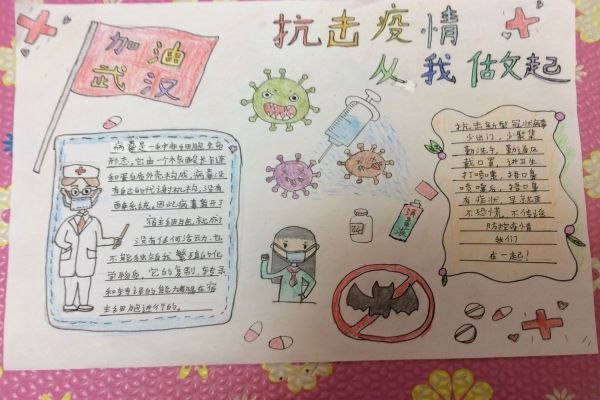 加油
武汉
抗击疫情
从我做起
病毒是一种非细胞生命
形态，它由一个核酸长链
和蛋白质外壳构成，病毒没
有自己的代谢机构，没有
酶系统，因此病毒离开了
宿主细胞，就成了
没有任何活力，也
不能独立自我繁殖的化
学物质，它的复制，转录
和转译的能力都是在宿
主细胞进行的。
消毒液
抗击新型冠状病毒
少出门，少聚集
勤洗手，勤消
戴口罩，讲卫生
打喷嚏，捂口鼻
喷嚏后，捂口鼻
有症状，早就医
不恐慌，不传谣
防控疫情
我们
在一起！